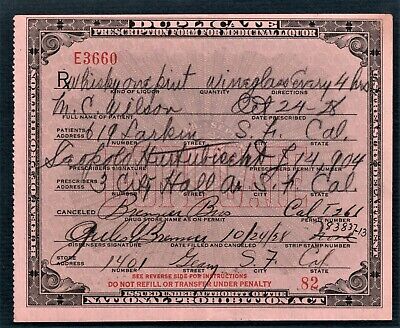 DUPLICATE
PRESCRIPTION FORM FOR MEDICINAL LIQUOR
E3660
Rx Whisky one pint Wineglass every 4 hrs
KIND OF LIQUOR QUANTITY DIRECTIONS
M. C. Wilson Oct 24-28
FULL NAME OF PATIENT DATE PRESCRIBED
PATIENT'S ADDRESS 619 Larkin S. F. Cal.
NUMBER STREET CITY STATE
Leopold
PRESCRIBER'S SIGNATURE PRESCRIBER'S PERMIT NUMBER
PRESCRIBER'S ADDRESS 3 City Hall Av S. F. Cal
NUMBER STREET CITY STATE
CANCELED Bros Cal
DRUG STORE NAME AS ON PERMIT PERMIT NUMBER
10/24/28
DISPENSER'S SIGNATURE DATE FILLED AND CANCELED STRIP STAMP NUMBER
STORE ADDRESS 1401 Geary S. F. Cal
NUMBER STREET CITY STATE
SEE REVERSE SIDE FOR INSTRUCTIONS
DO NOT REFILL OR TRANSFER UNDER PENALTY .82
ISSUED UNDER AUTHORITY OF THE
NATIONAL PROHIBITION ACT